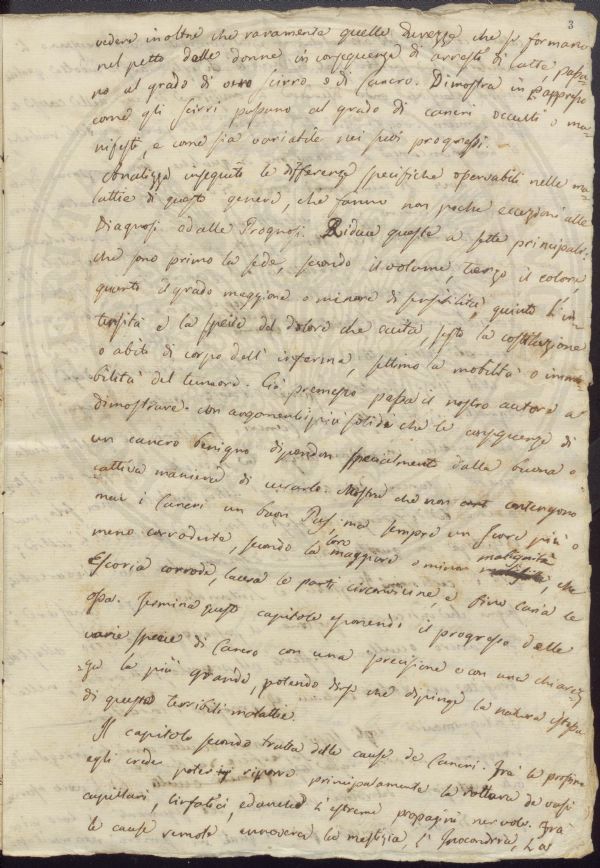 3
vedere inoltre che raramente quelle durezze che si formano
nel petto delle donne in conseguenza di arresti di latte passa-
no al grado di scirro, o di Cancro. Dimostra in appresso
come gli scirri passano al grado di cancri occulti o ma-
nifesti, e come sia variabile nei suoi progressi.
Analizza inseguito le differenze specifiche osservabili nelle ma-
lattie di questo genere, che fanno non poche eccezioni alle
Diagnosi ed alle Prognosi. Riduce queste a sette principali:
che sono primo la sede, secondo il volume, terzo il colore,
quarto il grado maggiore o minore di sensibilità, quinto l'in-
tensità e la specie del dolore che eccita, sesto la costituzione
o abito di corpo dell'inferma, settimo la mobilità o immo-
bilità del tumore. Ciò premesso passa il nostro autore a
dimostrare con argomenti più solidi che le conseguenze di
un cancro benigno dipendon specialmente dalla buona o
cattiva maniera di curarlo. Mostra che non contengono
mai i Cancri un buon Pus, ma sempre un Icore più o
meno corrodente, secondo la loro maggiore o minor malignità, che
escoria corrode, lacera le parti circonvicine, e fino caria le
ossa. Termina questo capitolo esponendo il progresso delle
varie specie di Cancro con una precisione e con una chiarez-
za la più grande, potendo dirsi che dipinge la natura istessa
di queste terribili malattie.
Il capitolo secondo tratta delle cause de Cancri. Frà le prossime
egli crede potersi riporre principalmente la rottura de vasi
capillari, linfatici, ed anche l'estreme propagini nervose. Fra
le cause remote annovera la mestizia, l'Ipocondria, La